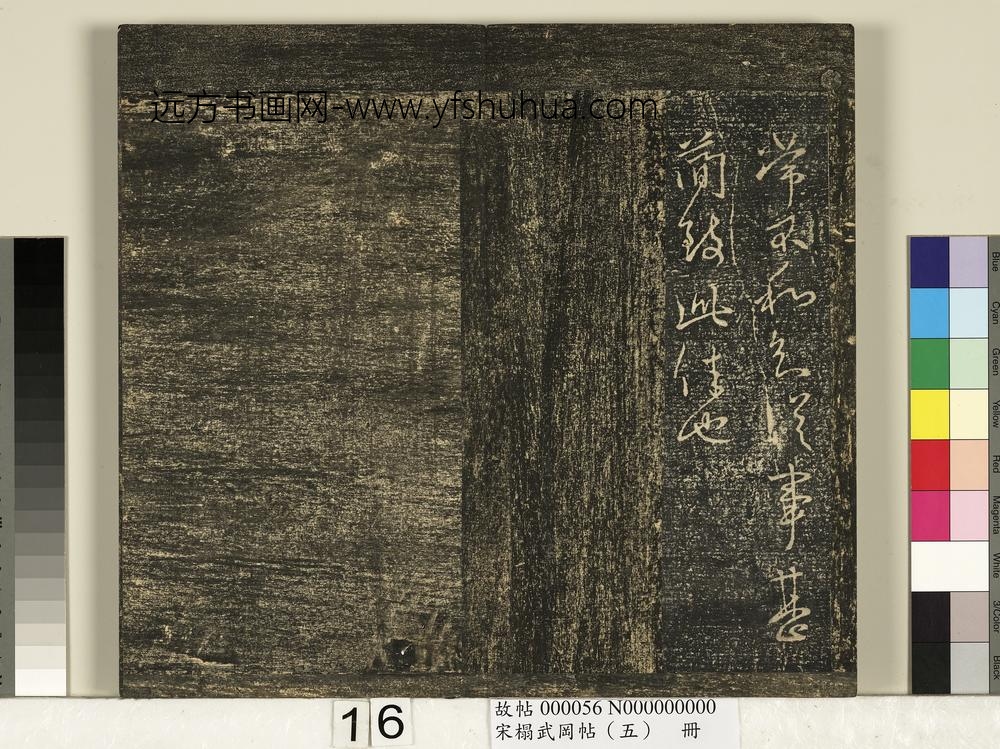 远方书画网-www.yfshuhua.com
常和從事甚
簡致此佳也
Blue
Cyan
Green
Yellow
Red
Magenta
White
3/Color
Black
16
故帖 000056 N000000000
宋榻武岡帖（五） 冊